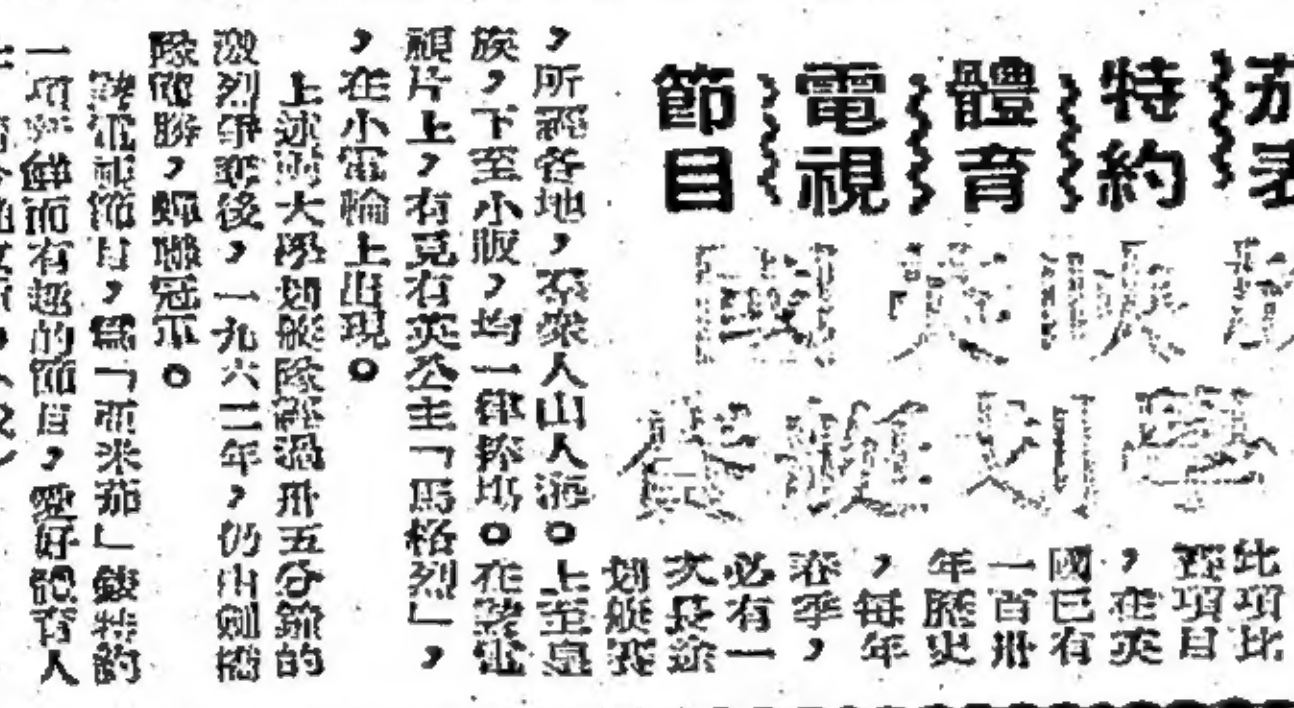 茄
表
特約
體育
電視
節目
放映英國
學划艇賽
比項比
賽項目
，在英
國已有
一百卅
年歷史
，每年
春季，
必有一
次長途
划艇賽
，所經各地，不衆人山人海。上至皇
族，下至小販，均一律捧塲。在該電
視片上，有見有英公主「馬格烈」，
，在小電輪上出現。
上述兩大學划艇隊經過卅五分鐘的
激烈爭奪後，一九六二年，仍由劍橋
隊獲勝，蟬聯冠軍。
該電視節目，爲「亞米茄」錶特約
一項新鮮而有趣的節目，愛好體育人